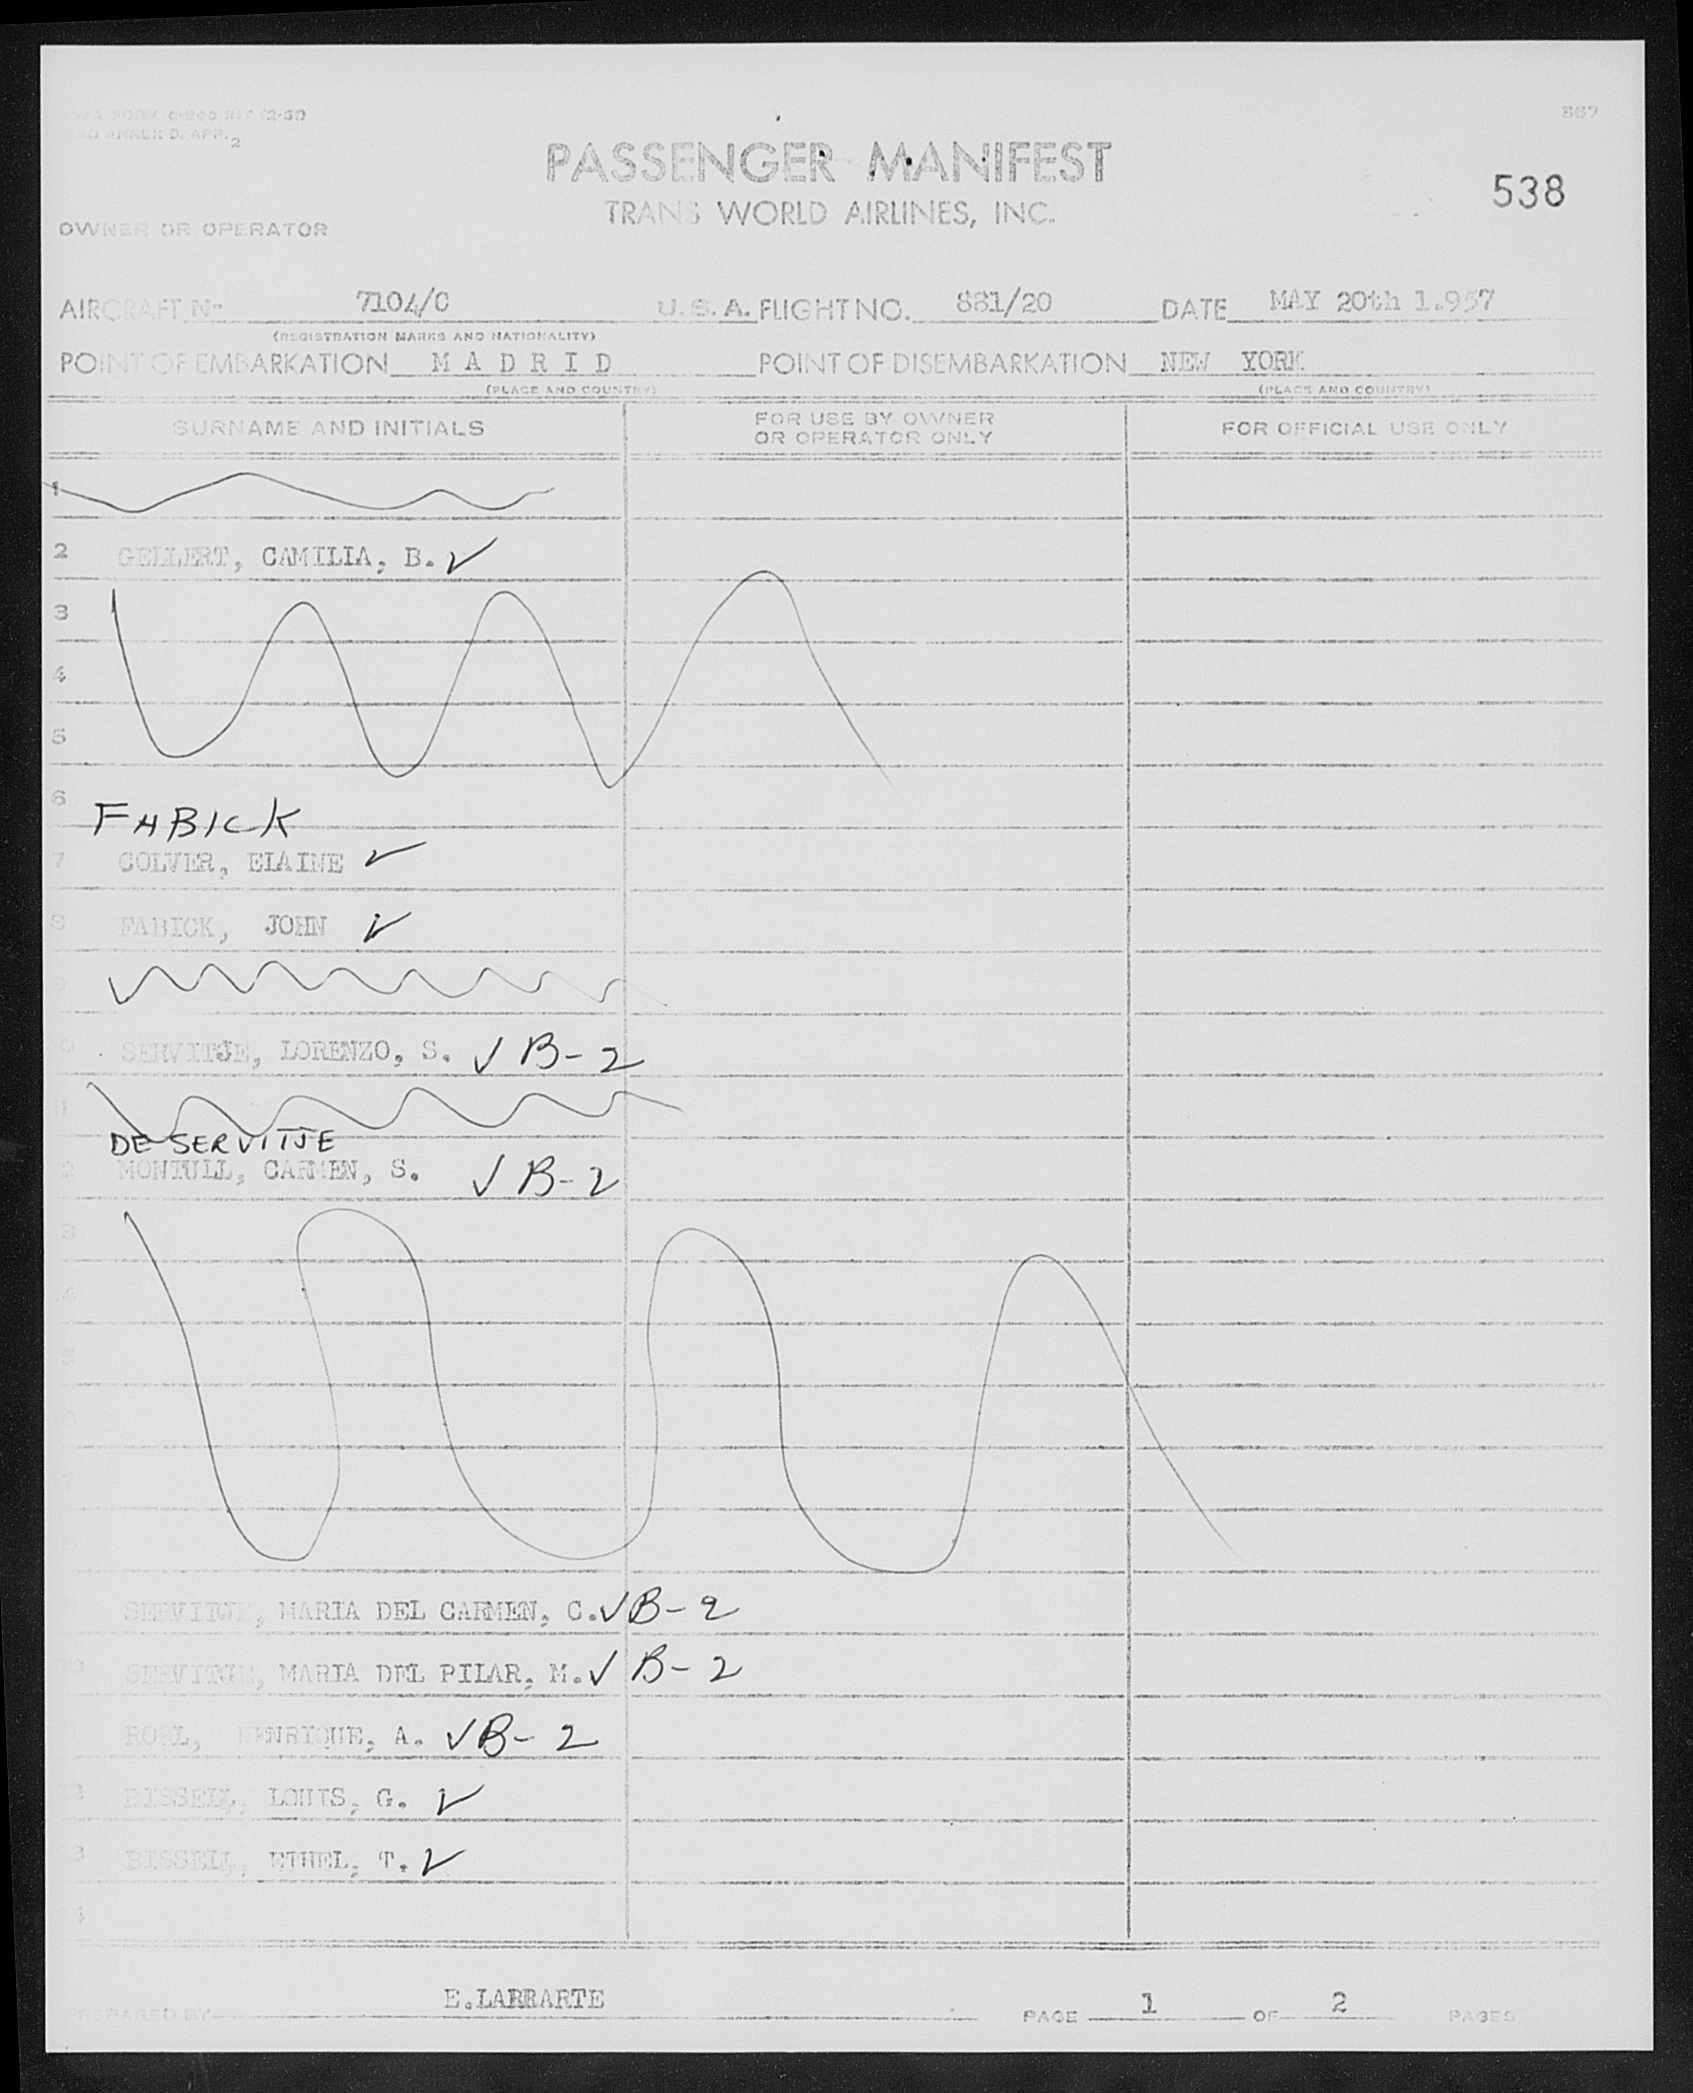 867
2
PASSENGER MANIFEST
538
TRANS WORLD AIRLINES, INC.
OWNER OR OPERATOR
AIRCRAFT No 7104/C U.S.A. FLIGHT NO. 881/20 DATE MAY 20th 1.957
(REGISTRATION MARKS AND NATIONALITY)
POINT OF EMBARKATION M A D R I D POINT OF DISEMBARKATION NEW YORK
(PLACE AND COUNTRY) (PLACE AND COUNTRY)
SURNAME AND INITIALS FOR USE BY OWNER OR OPERATOR ONLY FOR OFFICIAL USE ONLY
1
2 GELLERT, CAMILIA, B. ✓
3
4
5
6 FABICK
7 COLVER, ELAINE ✓
8 FABICK, JOHN ✓
9
0 SERVITJE, LORENZO, S. ✓ B-2
11
DE SERVITJE
2 MONTULL, CARMEN, S. ✓ B-2
3
4
5
6
7
SERVITJE, MARIA DEL CARMEN, C. ✓ B-2
20 SERVITJE, MARIA DEL PILAR, M. ✓ B-2
ROEL, HENRIQUE, A. ✓ B-2
22 BISSELL, LOUIS, G. ✓
3 BISSELL, ETHEL, T. ✓
4
PREPARED BY E.LARRARTE PAGE 1 OF 2 PAGES